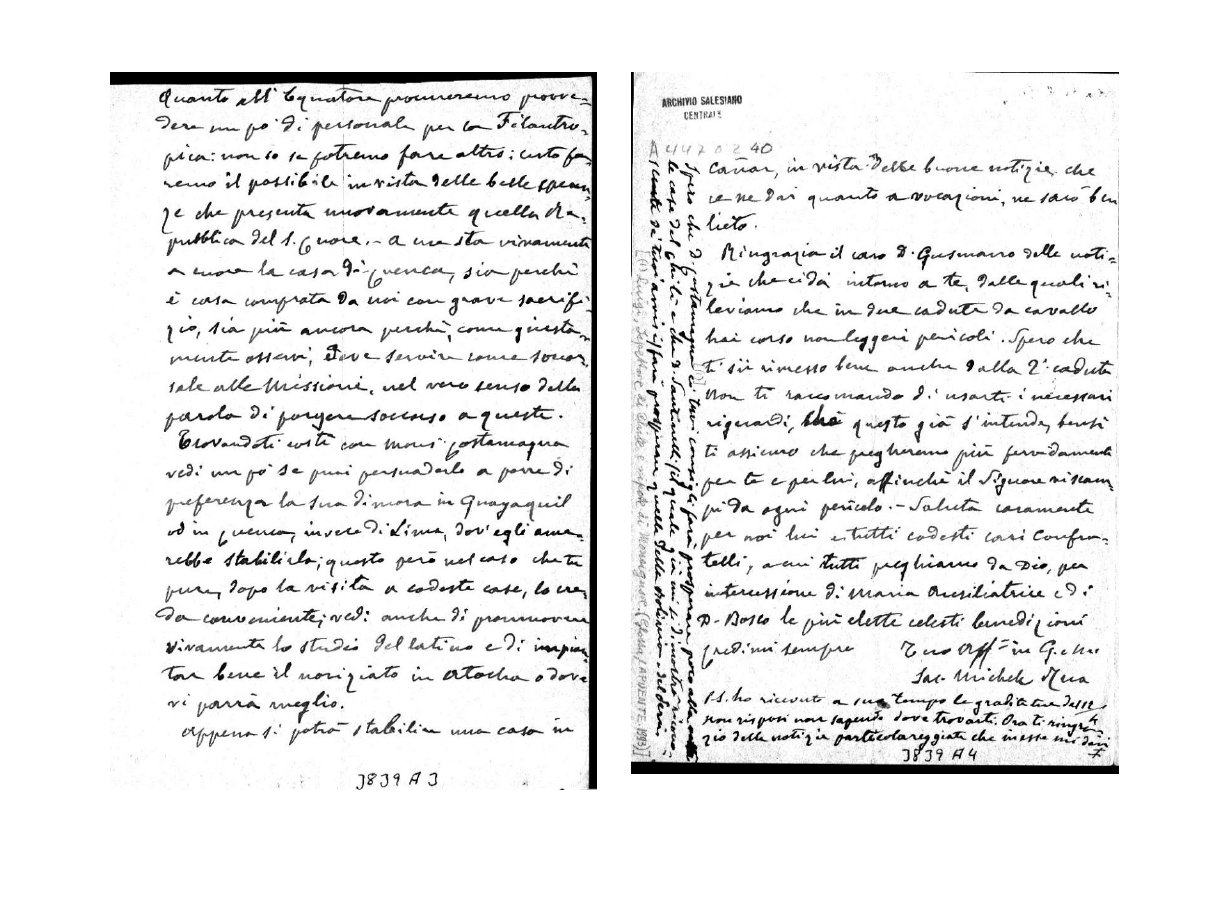 Quanto all'Equatore procureremo provve-
dere un po' di personale per la Filantro-
pica: non so se potremo fare altro: certo fa-
remo il possibile in vista delle belle speran-
ze che presenta nuovamente quella Re-
pubblica del S. Cuore. - A me sta vivamente
a cuore la casa di Cuenca, sia perchè
è casa comprata da noi con grave sacrifi-
zio, sia più ancora perchè, come giusta-
mente osservi, deve servire come soccor
sale alle Missioni, nel vero senso della
parola di porgere soccorso a queste.
Trovandoti costì con Mons. Costamagna
vedi un po' se puoi persuaderlo a porre di
preferenza la sua dimora in Guayaquil
od in Cuenca, invece di Lima, dov'egli ame-
rebbe stabilirla; questo però nel caso che tu
pure, dopo la visita a codeste case, lo cre-
da conveniente; vedi anche di promuovere
vivamente lo studio del latino e di impian
tar bene il noviziato in Atocha o dove
vi parrà meglio.
Appena si potrà stabilire una casa in
3839 A 3
ARCHIVIO SALESIANO
CENTRALE
A 4470240
Cañar, in vista delle buone notizie che
ce ne dai quanto a vocazioni, ne sarò ben
lieto.
Ringrazia il caro D. Gusmano delle noti-
zie che ci dà intorno a te, dalle quali ri-
leviamo che in due cadute da cavallo
hai corso non leggeri pericoli. Spero che
ti sii rimesso bene anche dalla 2ª caduta
Non ti raccomando di usarti i necessari
riguardi, chè questo già s'intende, bensì
ti assicuro che pregheremo più fervidamente
per te e per lui, affinchè il Signore vi scam-
pi da ogni pericolo. - Saluta caramente
per noi lui e tutti codesti cari Confra-
telli, a cui tutti preghiamo da Dio, per
intercessione di Maria Ausiliatrice e di
D. Bosco le più elette celesti benedizioni
Credimi sempre Tuo Aff.mo in G. e M.
Sac. Michele Rua
P.S. ho ricevuto a suo tempo le gradite tue
non risposi non sapendo dove trovarti. Ora ti ringra
zio delle notizie particolareggiate che in esse mi davi
3839 A 4
Spero che D. Costamagna coi tuoi consigli farà prosperare poco alla volta
le case del Chilì e che D. Santinelli, il quale già mi si dimostrò
farà prosperare quella della Bolivia